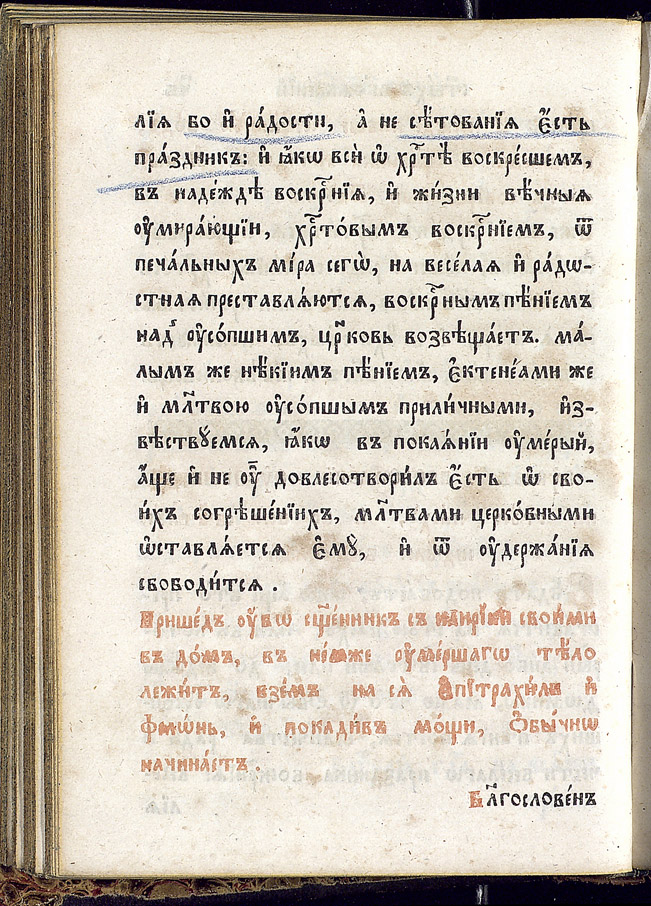 лїѧ бо и҆ ра́дости, а҆ не сѣ́тованїѧ є҆́сть
пра́здникъ: и҆ ꙗ҆́кѡ всѝ ѡ҆ хрⷭ҇тѣ̀ воскре́сшемъ,
въ наде́ждѣ воскрⷭ҇нїѧ, и҆ жи́зни вѣ́чныѧ
ᲂу҆мира́ющїи, хрⷭ҇то́вымъ воскрⷭ҇нїемъ, ѿ
печа́льныхъ мі́ра сегѡ̀, на весе́лаѧ и҆ ра́дѡ-
стнаѧ преставлѧ́ютсѧ, воскрⷭ҇нымъ пѣ́нїемъ
над̾ ᲂу҆со́пшимъ, цр҃ковь возвѣща́етъ. ма́-
лымъ же нѣ́кїимъ пѣ́нїемъ, є҆ктенеѧми же
и҆ мл҃твою ᲂу҆со́пшымъ прили́чными, и҆з-
вѣ́ствꙋемсѧ, ꙗ҆́кѡ въ покаѧ́нїи ᲂу҆ме́рый,
а҆́ще и҆ не ᲂу҆̀ довлесотвори́лъ є҆́сть ѡ҆ сво-
и́хъ согрѣше́нїихъ, мл҃твами церко́вными
ѡ҆ставлѧ́етсѧ є҆мꙋ̀, и҆ ѿ ᲂу҆держа́нїѧ
свободи́тсѧ.
Прише́дъ ᲂу҆́бѡ сщ҃е́нникъ съ кли́рики свои́ми
въ до́мъ, въ не́мже ᲂу҆ме́ршагѡ тѣ́ло
лежи́тъ, взе́мъ на сѧ̀ є҆пїтрахи́ль и҆
фмїѡ́нъ, и҆ покади́въ мо́щи, ѻ҆бы́чнѡ
начина́етъ.
Бл҃гослове́нъ